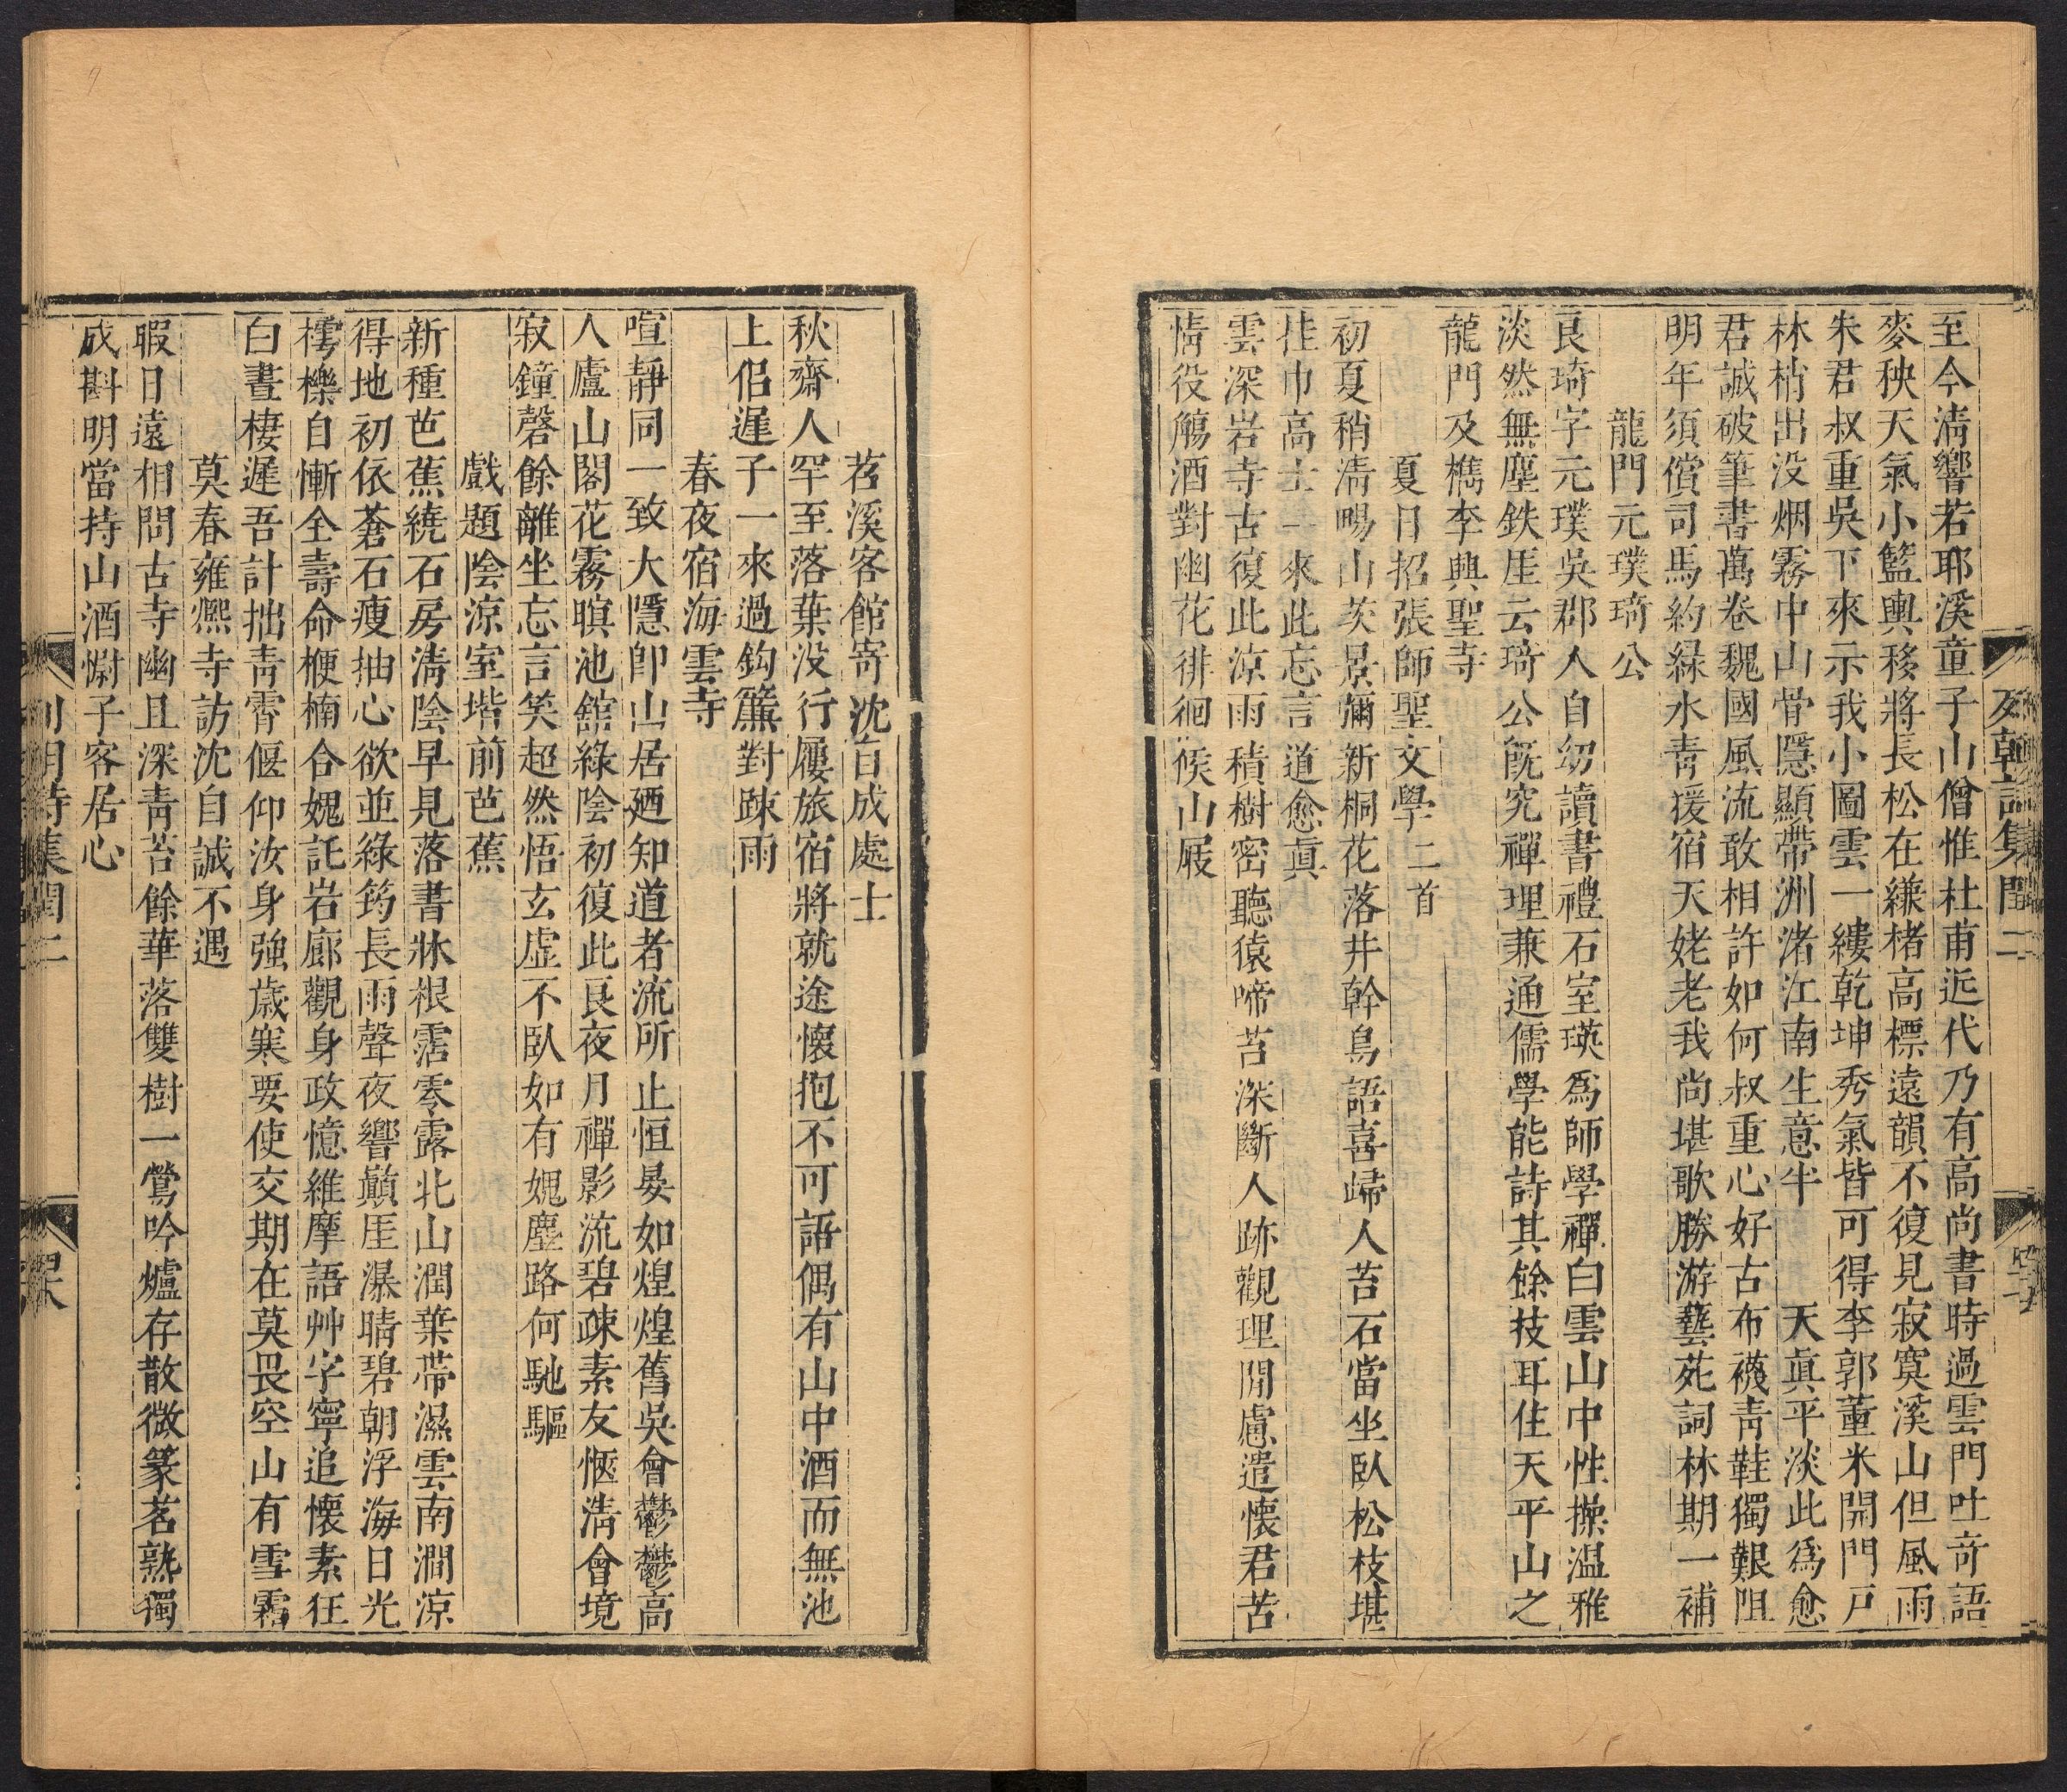 至今清響若耶溪童子山僧惟杜甫近代乃有高尚書時過雲門吐奇語
麥秧天氣小籃輿移將長松在縑楮高標遠韻不復見寂寞溪山但風雨
朱君叔重吳下來示我小圖雲一縷乾坤秀氣皆可得李郭董米開門戸
林梢出没烟霧中山骨隱顯帶洲渚江南生意半 天眞平淡此爲愈
君誠破筆書萬卷魏國風流敢相許如何叔重心好古布襪青鞋獨艱阻
明年須償司馬約緑水青猨宿天姥老我尚堪歌勝游藝苑詞林期一補
龍門元璞琦公
良琦字元璞吳郡人自幼讀書禮石室瑛爲師學禪白雲山中性操溫雅
淡然無塵鉄厓云琦公旣究禪理兼通儒學能詩其餘技耳住天平山之
龍門及檇李興聖寺
夏日招張師聖文學二首
初夏稍清暘山茨景彌新桐花落井幹鳥語喜歸人苔石當坐臥松枝堪
挂巾高士一來此忘言道愈眞
雲深岩寺古復此涼雨積樹密聽猿啼苔深斷人跡觀理閒慮遣懷君苦
情役觴酒對幽花徘徊候山屐
苕溪客館寄沈自成處士
秋齋人罕至落葉没行屨旅宿將就途懷抱不可語偶有山中酒而無池
上侶遲子一來過鈎簾對踈雨
春夜宿海雲寺
喧靜同一致大隱卽山居廼知道者流所止恒晏如煌煌舊吳會鬱鬱高
人廬山閣花霧暝池館綠陰初復此良夜月禪影流碧疎素友愜清會境
寂鐘磬餘離坐忘言笑超然悟玄虛不臥如有媿塵路何馳驅
戲題陰涼室堦前芭蕉
新種芭蕉繞石房清陰早見落書牀根霑零露北山潤葉帶濕雲南澗涼
得地初依蒼石瘦抽心欲並綠筠長雨聲夜響巔厓瀑晴碧朝浮海日光
樗櫟自慚全壽命楩楠合媿託岩廊觀身政憶維摩語艸字寧追懷素狂
白晝棲遲吾計拙青霄偃仰汝身強歲寒要使交期在莫畏空山有雪霜
莫春雍熙寺訪沈自誠不遇
暇日遠相問古寺幽且深青苔餘華落雙樹一鶯吟爐存散微篆茗熟獨
成斟明當持山酒慰子客居心